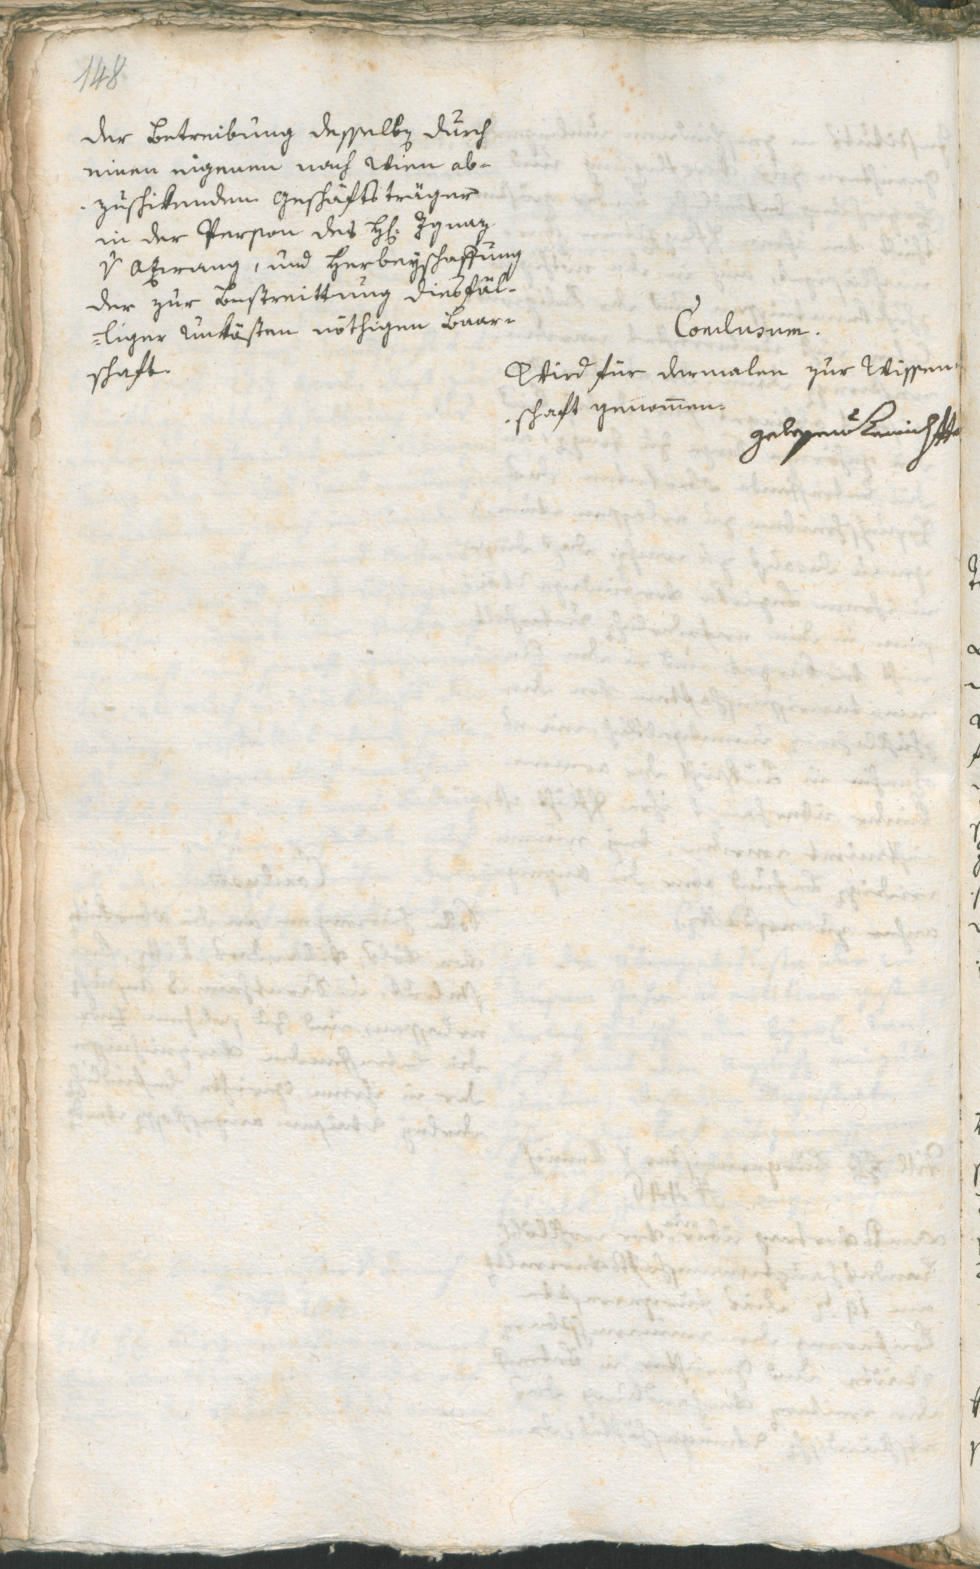 148
der Betreibung desselben durch
einen eigenen nach Wien ab-
zuschikenden Geschäftsträger
in der Person des H. Ignaz
v Atzwang, und Herbeyschaffung
der zur Bestreittung diesfäl-
-liger Unkösten nöthigen Baar-
schaft.
Conclusum.
Wird für dermalen zur Wissen-
schaft genommen.